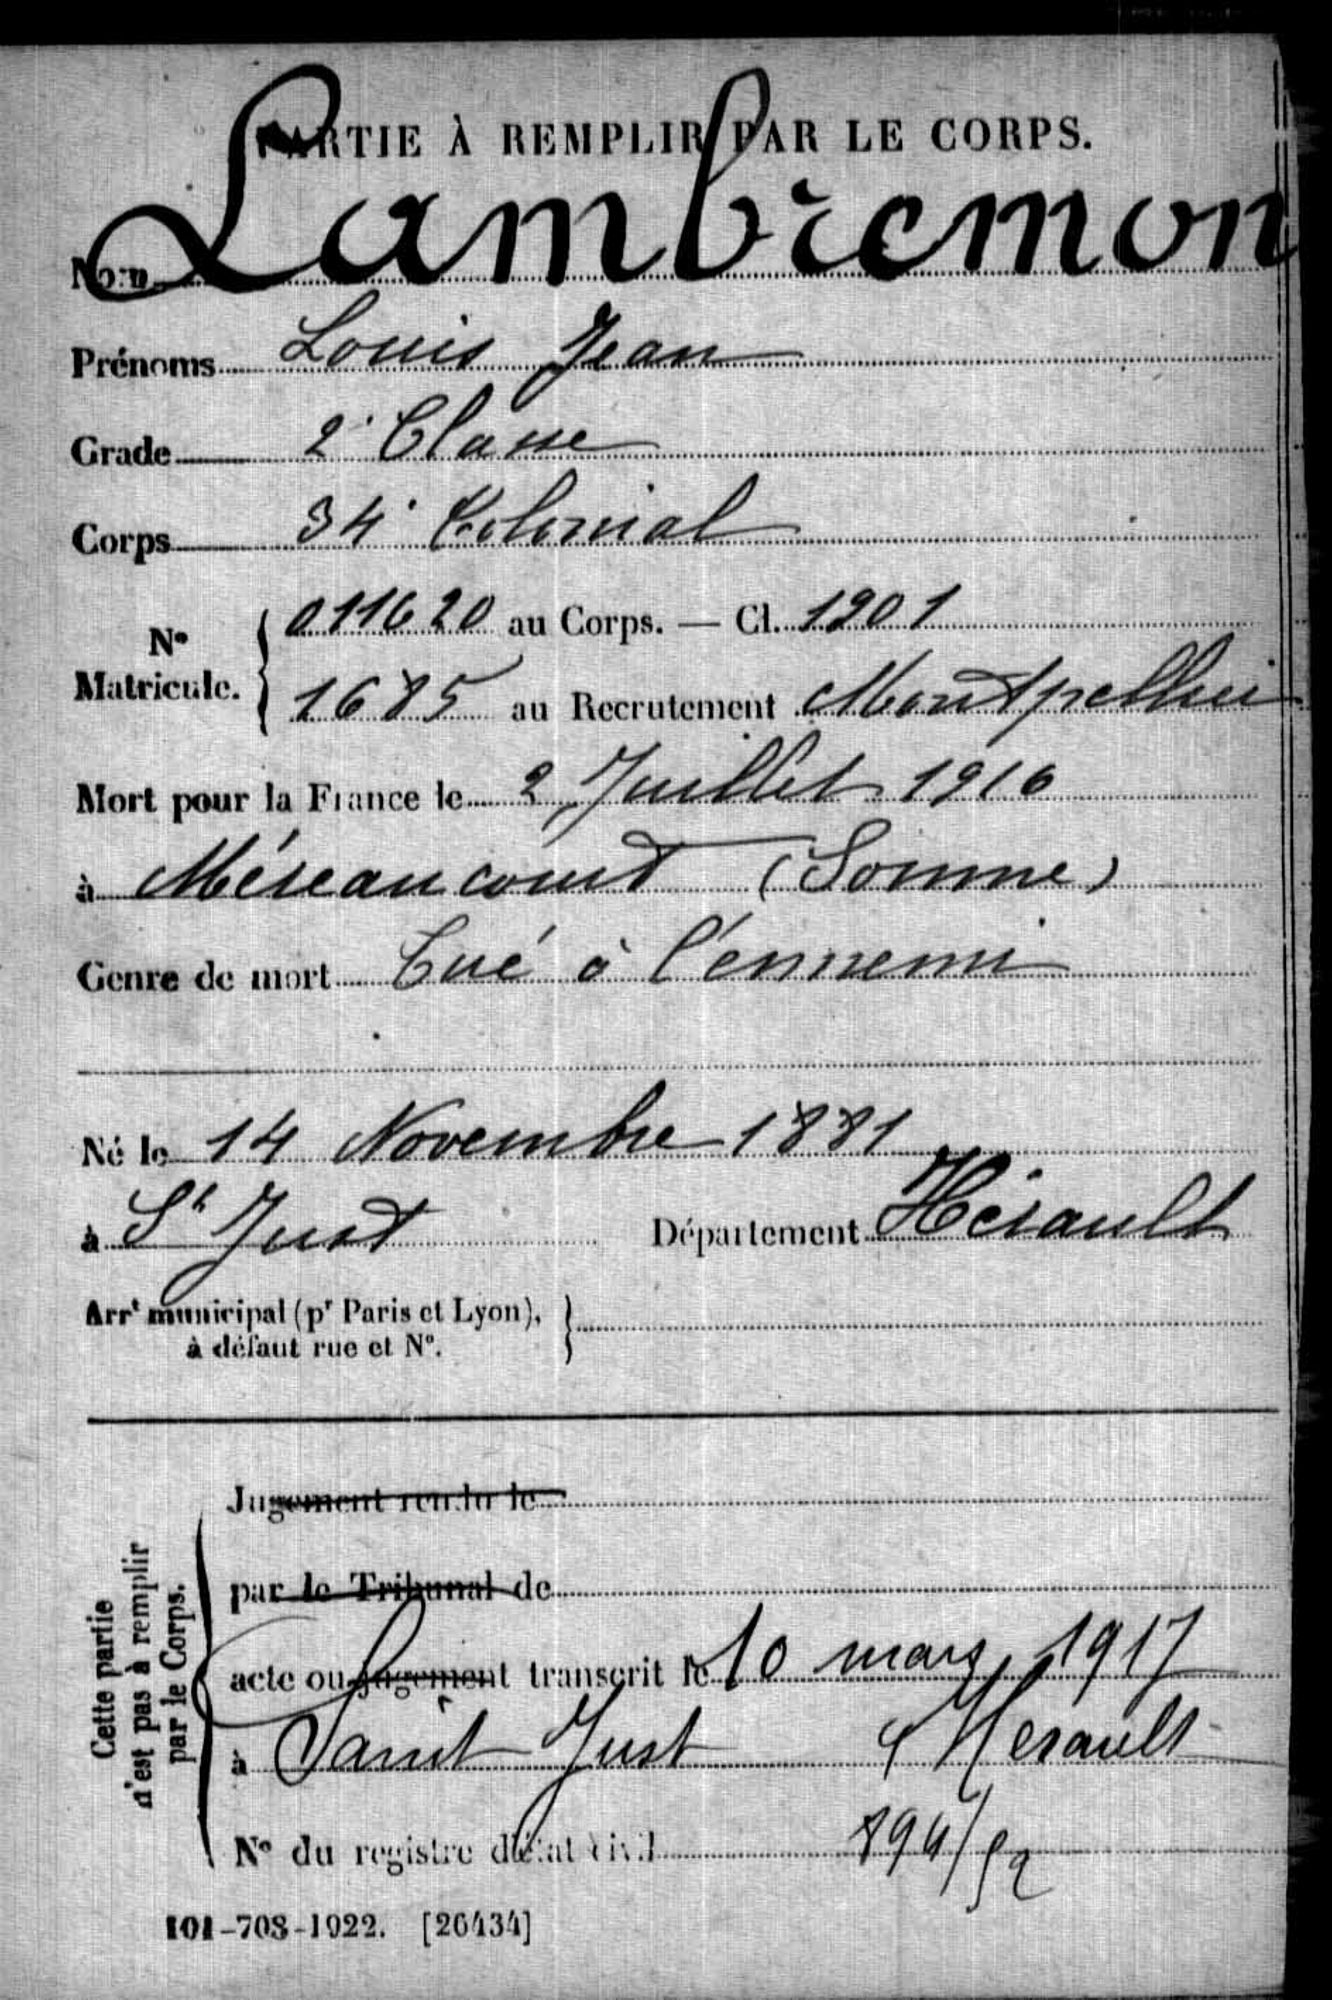 PARTIE À REMPLIR PAR LE CORPS.
Nom Lambremon
Prénoms Louis Jean
Grade 2e Classe
Corps 34e Colonial
No Matricule. { 011620 au Corps. — Cl. 1901
1685 au Recrutement Montpellier
Mort pour la France le 2 Juillet 1916
à Méréaucourt (Somme)
Genre de mort Tué à l'ennemi
Né le 14 Novembre 1881
à St Just Département Hérault
Arrt municipal (pr Paris et Lyon), }
à défaut rue et No.
Cette partie
n'est pas à remplir
par le Corps.
Jugement rendu le
par le Tribunal de
acte ou jugement transcrit le 10 mars 1917
à Saint Just Hérault
No du registre d'état civil
101-708-1922. [26434]